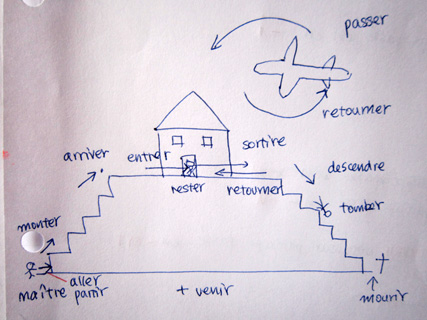 passer
retourner
arriver
entrer
sortire
descendre
rester
retourner
tomber
monter
aller
maître
partir
+ venir
mourir